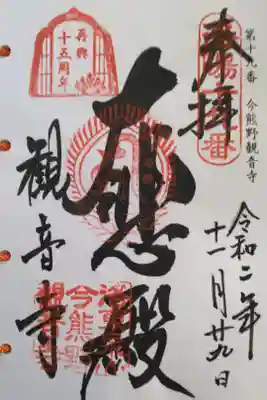 第十九番 今熊野観音寺
奉拝
令和二年
十一月廿九日
大悲殿
再興
十五周年
観音寺
今熊野